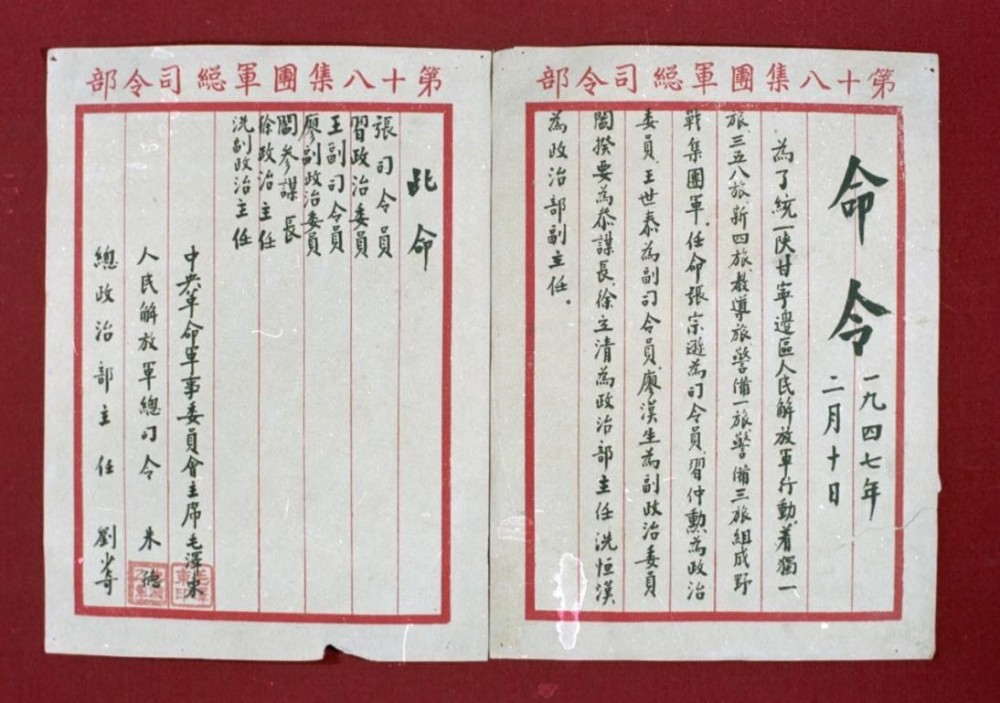 第十八集團軍総司令部
命令
一九四七年
二月十日
為了統一陝甘寧邊區人民解放軍行動,着獨一
旅、三五八旅、新四旅、教導旅、警備一旅、警備三旅組成野
戰集團軍,任命張宗遜為司令員,習仲勳為政治
委員,王世泰為副司令員,廖漢生為副政治委員
閻揆要為參謀長,徐立清為政治部主任,冼恒漢
為政治部副主任。
第十八集團軍総司令部
此命
張司令員
習政治委員
王副司令員
廖副政治委員
閻參謀長
徐政治主任
冼副政治主任
中央革命軍事委員會主席毛澤東
人民解放軍總司令 朱德
總政治部主任 劉少奇